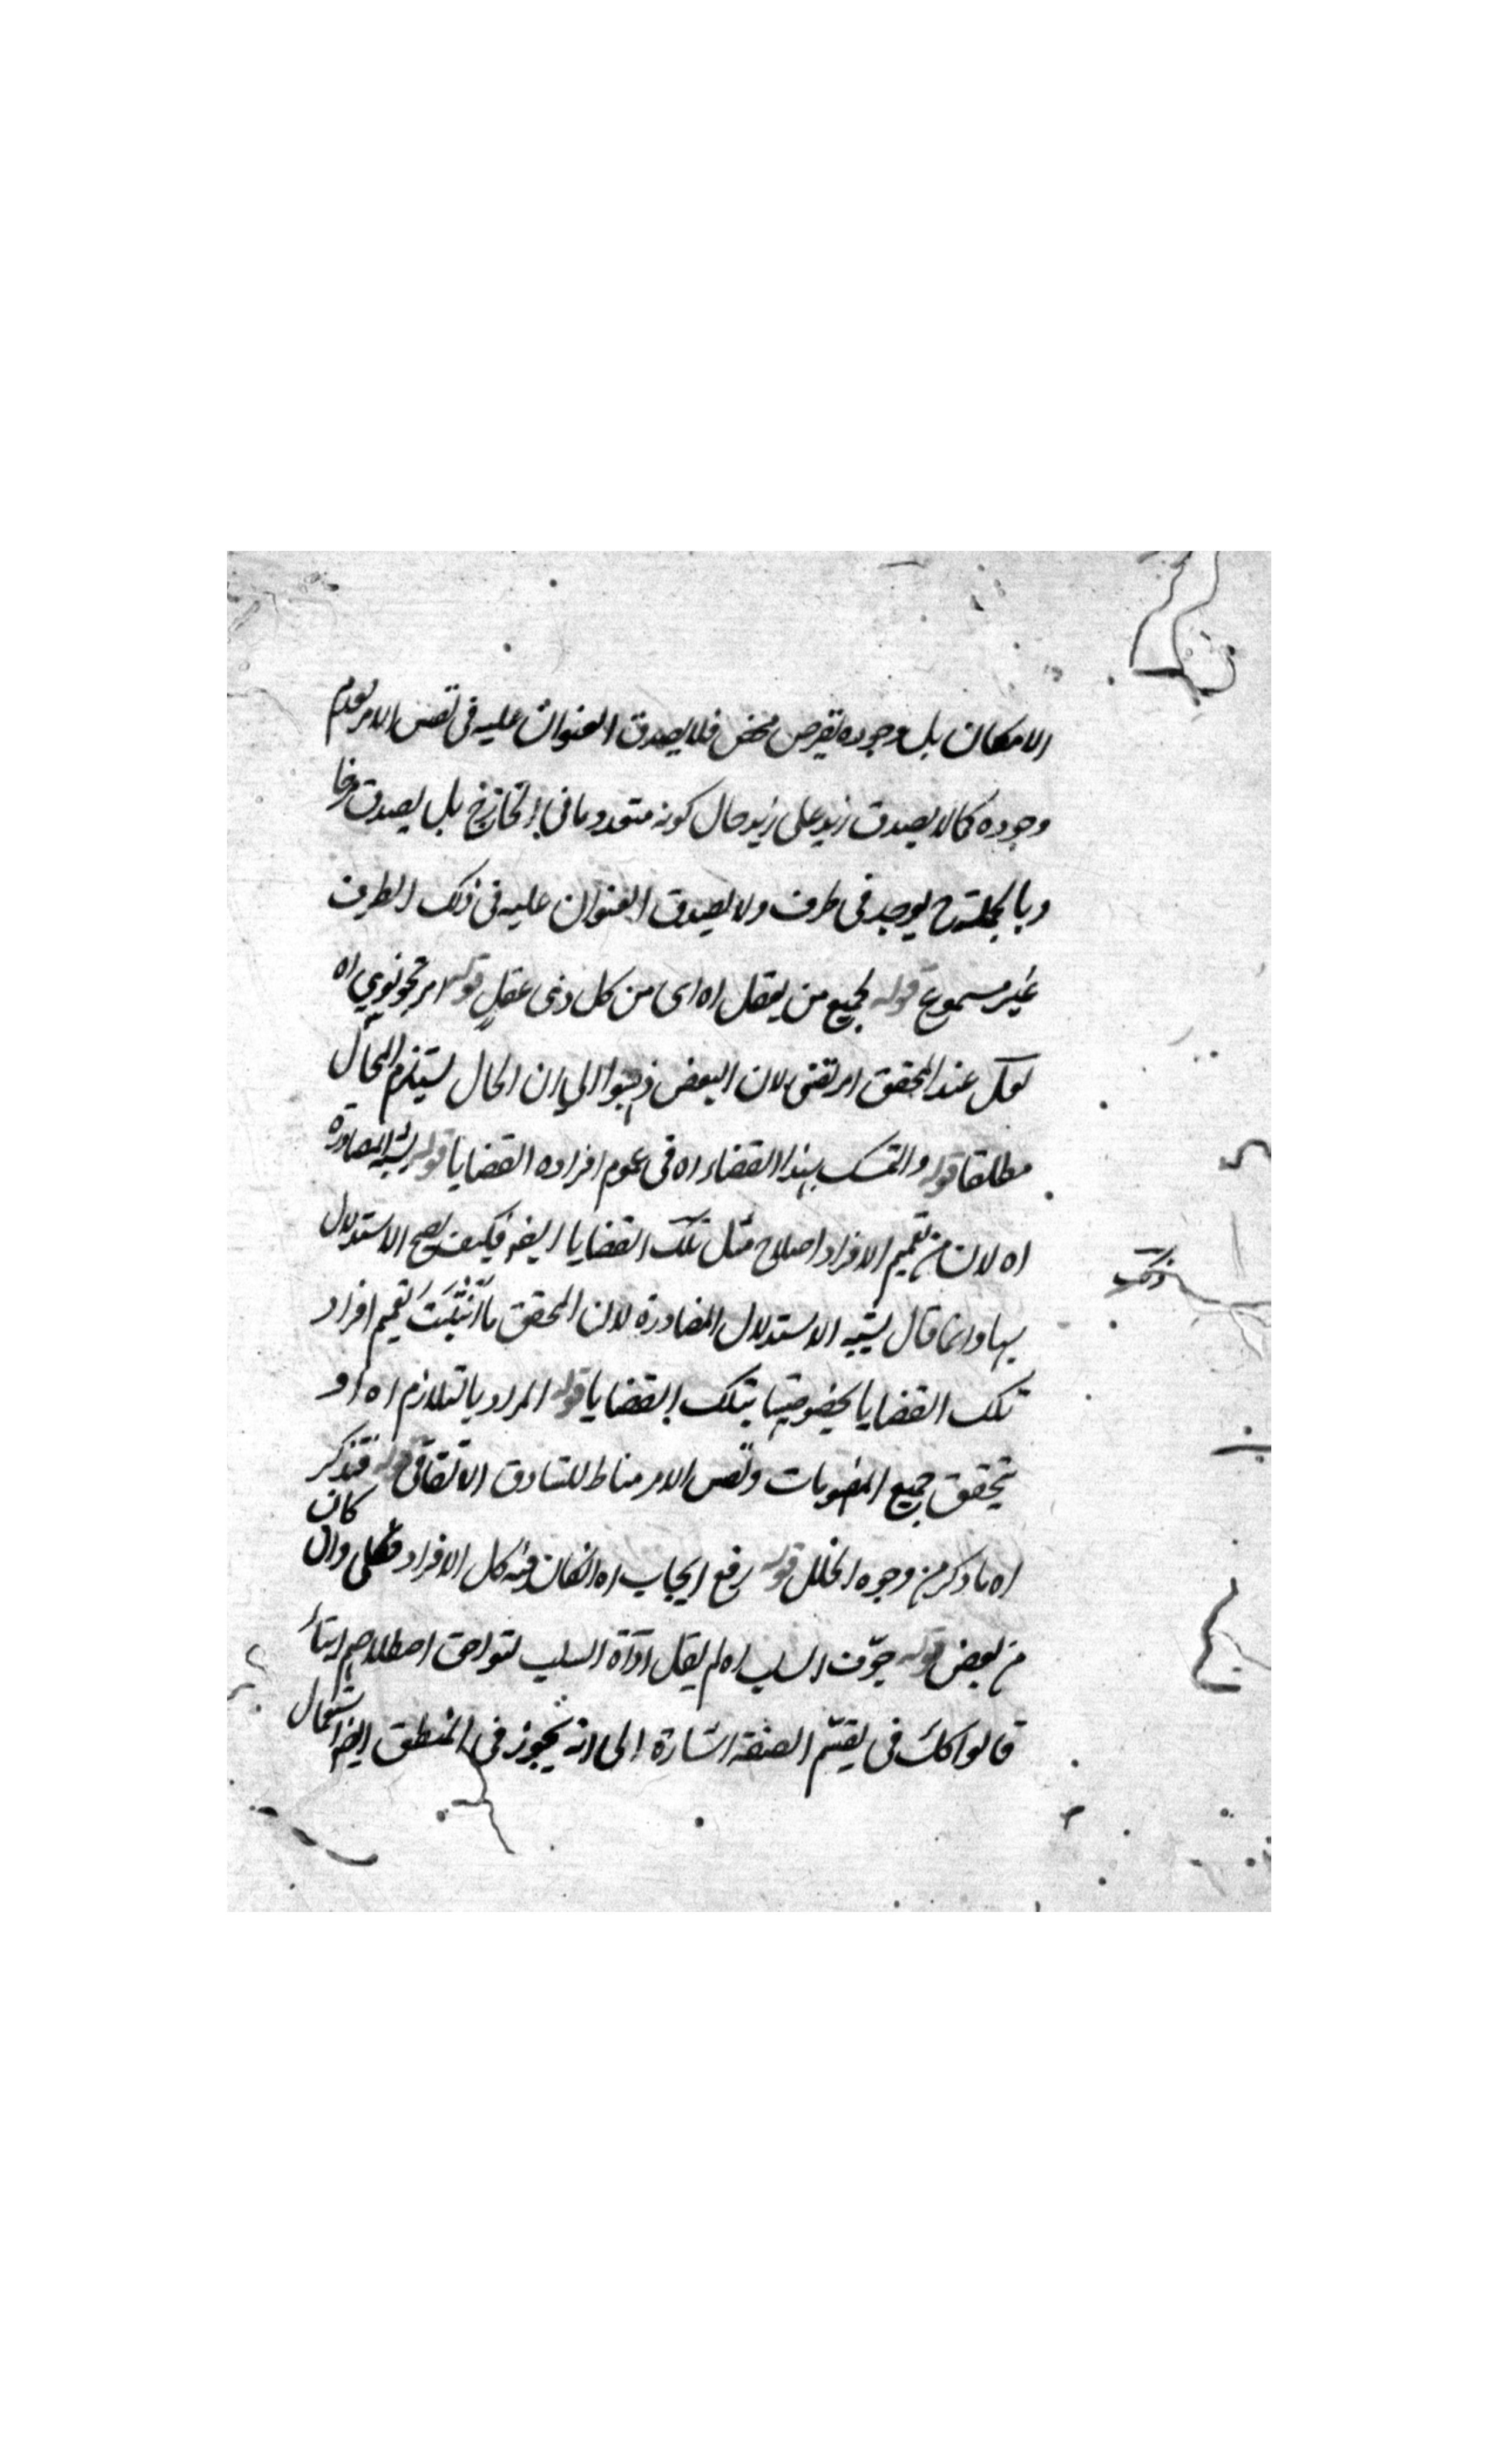 الامكان بل وجوده بفرض محض فلا يصدق العنوان عليه فى نفس الامر لعدم
وجوده كما لا يصدق زيد على زيد حال كونه معدوما فى الخارج بل يصدق فرضا
وبالجملة ح يوجد فى ظرف ولا يصدق العنوان عليه فى ذلك الظرف
غير مسموع قوله لجميع من يعقل اه اى من كل ذى عقل قوله امر تجويزي اه
لعل عند المحقق امر يقينى لان البعض ذهبوا الى ان المحال يستلزم المحال
مطلقا قوله والتمسك بهذا القضاء اه فى عموم افراده القضايا قوله يشبه المصادرة
اه لان من تعميم الافراد اصلاح مثل تلك القضايا ايضا فكيف يصح الاستدلال
ذلك
بها وانما قال يشبه الاستدلال المصادرة لان المحقق ما أثبت تعميم افراد
تلك القضايا بخصوصيتها بتلك القضايا قوله المراد بالتلازم اه او
تحقق جميع المفهومات ونفس الامر مناط للتصادق الاتفاقى قوله فتذكر
اه ما ذكر من وجوه الخلل قوله رفع ايجاب اه ان كان فيه كل الافراد فكلى وان كان
من بعض قوله حرف السلب اه لم يقل اداة السلب لتوافق اصطلاحهم
قالوا كك فى تقسيم الصفة اشارة الى انه يجوز فى المنطق ايضا استعمال